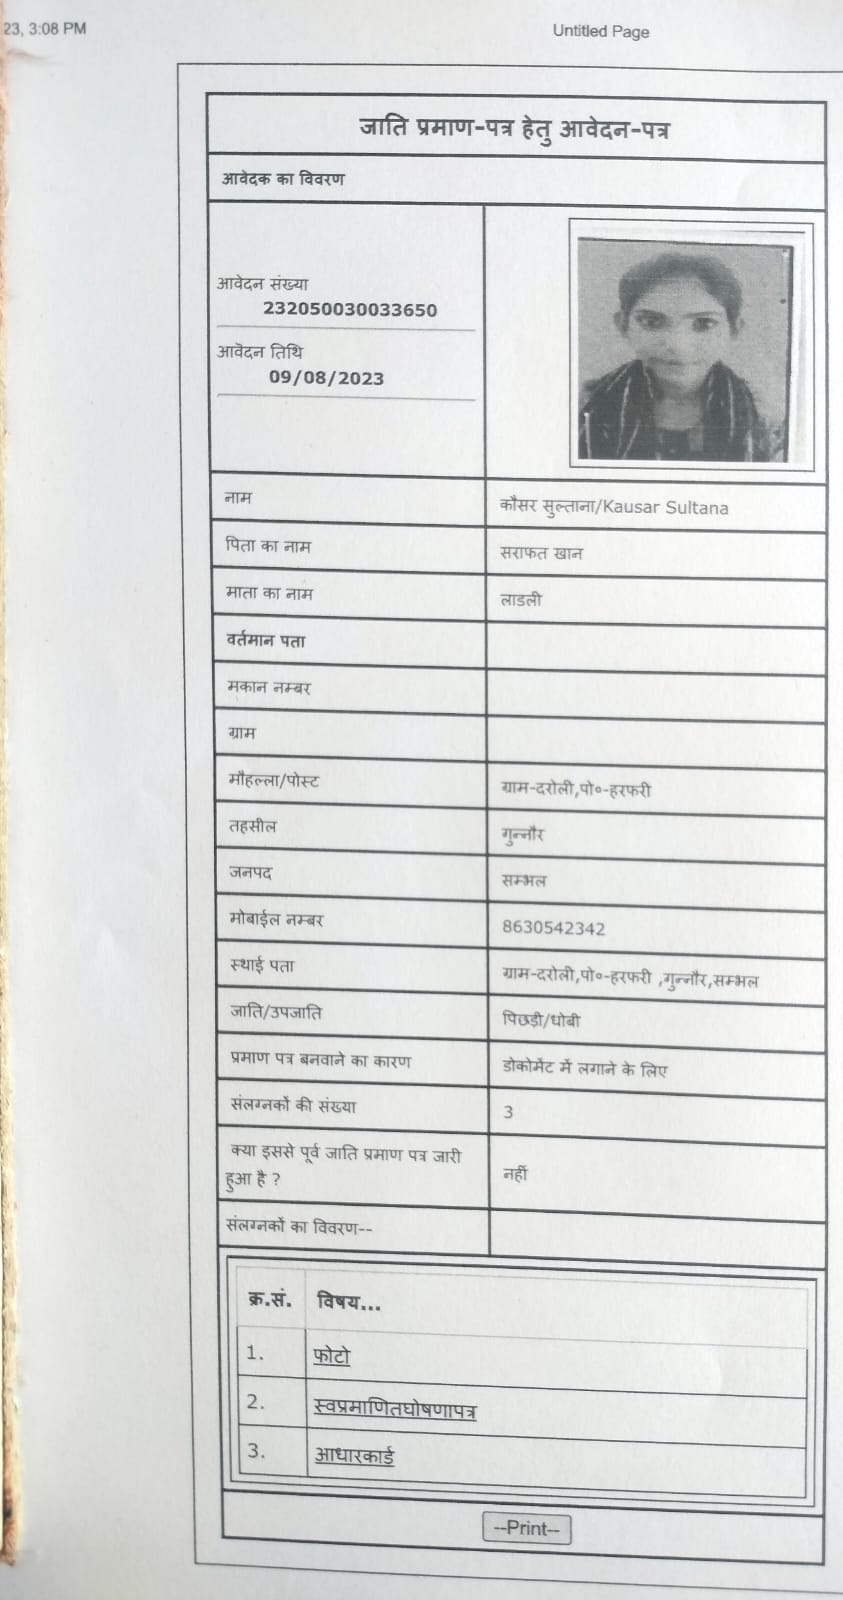 23, 3:08 PM
Untitled Page
जाति प्रमाण-पत्र हेतु आवेदन-पत्र
आवेदक का विवरण
आवेदन संख्या
232050030033650
आवेदन तिथि
09/08/2023
नाम
कौसर सुल्ताना/Kausar Sultana
पिता का नाम
सराफत खान
माता का नाम
लाडली
वर्तमान पता
मकान नम्बर
ग्राम
मौहल्ला/पोस्ट
ग्राम-दरोली,पो०-हरफरी
तहसील
गुन्नौर
जनपद
सम्भल
मोबाईल नम्बर
8630542342
स्थाई पता
ग्राम-दरोली,पो०-हरफरी ,गुन्नौर,सम्भल
जाति/उपजाति
पिछड़ी/धोबी
प्रमाण पत्र बनवाने का कारण
डोकोमेंट में लगाने के लिए
संलग्नकों की संख्या
3
क्या इससे पूर्व जाति प्रमाण पत्र जारी
हुआ है ?
नहीं
संलग्नकों का विवरण--
क्र.सं. विषय...
1. फोटो
2. स्वप्रमाणितघोषणापत्र
3. आधारकार्ड
--Print--